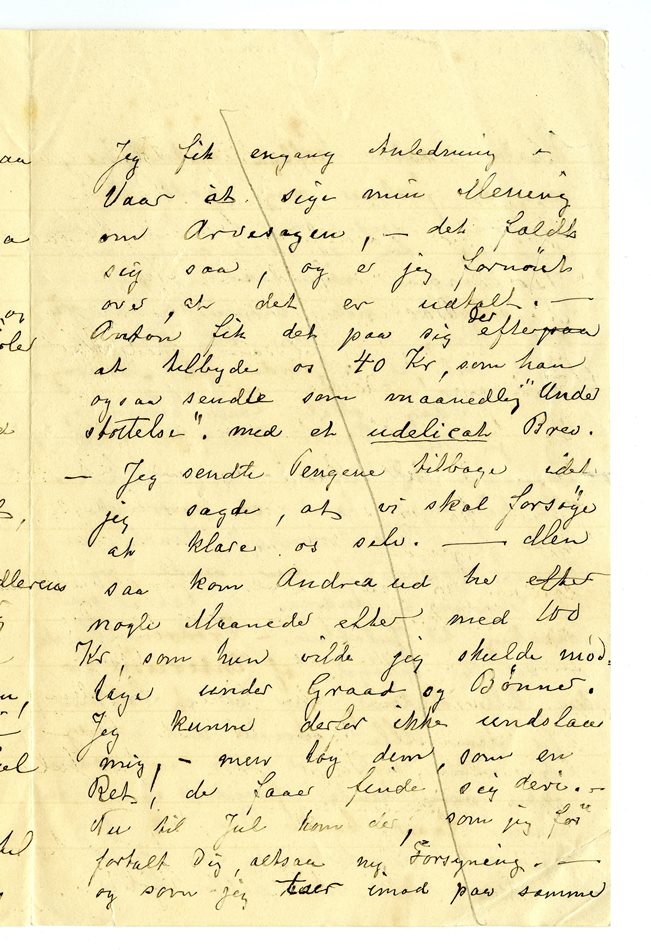 Jeg fik engang Anledning i
Vaar at sige min Mening
om Arvesagen, – det faldt
sig saa, og er jeg fornöiet
over, at det er udtalt. –
Anton fik det paa sig der efter paa
at tilbyde os 40 Kr, som han
ogsaa sendte som maanedlig "Under
støttelse". med et udelicat Brev.
– Jeg sendte Pengene tilbage idet
jeg sagde, at vi skal forsøge
at klare os selv. – Men
saa kom Andrea ud her efter
nogle Maaneder efter med 100
Kr, som hun vilde jeg skulde mod-
tage under Graad og Bønner.
Jeg kunne derfor ikke undslaa
mig, – men tog dem, som en
Ret, de faar finde sig deri. –
Nu til Jul kom der, som jeg för
fortalt Dig, altsaa ny Forsyning. –
og som jeg taer imod paa samme